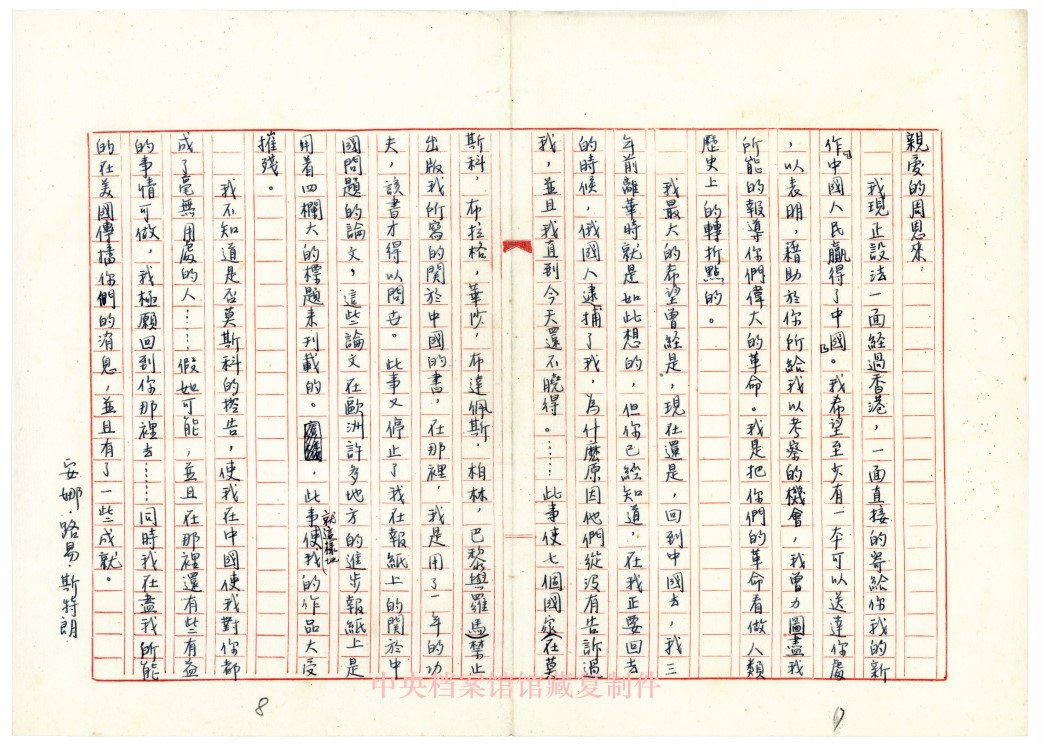 親愛的周恩來:
我現正設法一面經過香港，一面直接的寄給你我的新
作「中國人民贏得了中國」。我希望至少有一本可以送達你處
，以表明，藉助於你所給我以考察的機會，我曾力圖盡我
所能的報導你們偉大的革命。我是把你們的革命看做人類
歷史上的轉折點的。
我最大的希望曾經是，現在還是，回到中國去，我三
年前離華時就是如此想的，但你已經知道，在我正要回去
的時候，俄國人逮捕了我，為什麼原因他們從沒有告訴過
我，並且我直到今天還不曉得。……此事使七個國家在莫
斯科，布拉格，華沙，布達佩斯，柏林，巴黎與羅馬禁止
出版我所寫的關於中國的書，在那裡，我是用了一年的功
夫，該書才得以問世。此事又停止了我在報紙上的關於中
國問題的論文，這些論文在歐洲許多地方的進步報紙上是
用着四欄大的標題來刊載的。，此事就這樣地使我的作品大受
摧殘。
我不知道是否莫斯科的控告，使我在中國使我對你都
成了毫無用處的人……假如可能，並且在那裡還有些有益
的事情可做，我極願回到你那裡去……同時我在盡我所能
的在美國傳播你們的消息，並且有了一些成就。
安娜·路易·斯特朗
中央档案馆馆藏复制件
8